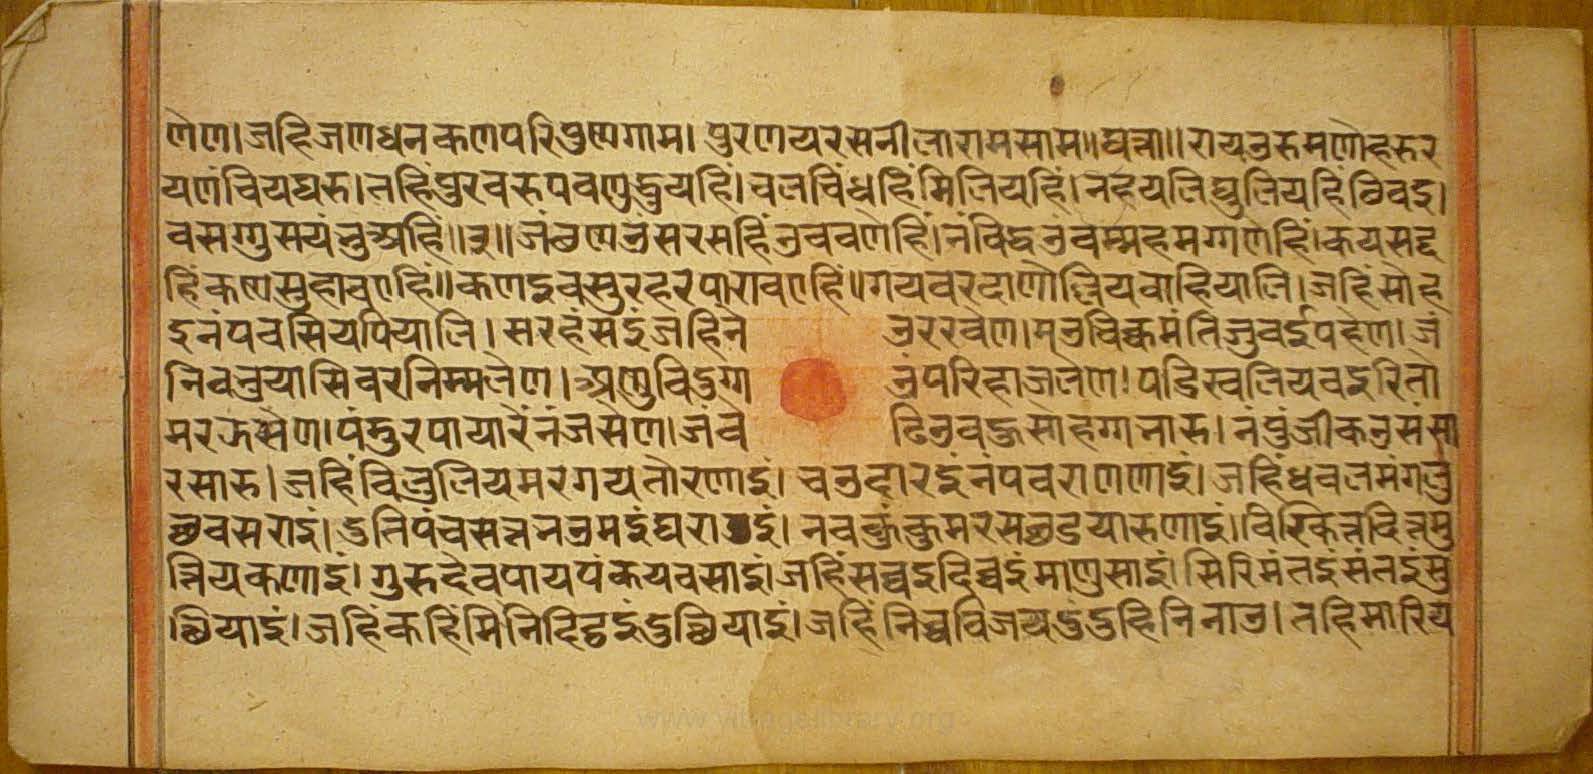 णेण। जहिं जणधनकणपरिपुण्णगाम। पुरणयरसुसीमारामसाम॥ घत्ता॥ रायउरु मणोहरु र
यणंचियघरु। तहिं पुरवरु पवणुद्धुयहिं। चलचिंधहिं मिलियहिं। नहयलि घुलियहिं छिवइ
व सग्गु सयंभुअहिं॥३॥ जं छण्णउं सरसहिं उववणेहिं। नं विद्धउं वम्महमग्गणेहिं। कयसद्द
हिं कण्णसुहावएहिं॥ कणइ व सुरहरपारावएहिं॥ गयवरदाणोल्लियवाहियालि। जहिं सोह
इ नं पवसियपियालि। सरहंसइं जहिं ने उररवेण। मउ चिक्कमंति जुवईपहेण। जं
निवभुयासिवरनिम्मलेण। अण्णु वि दुग्ग उं परिहाजलेण। पडिखलियवइरितो
मरझसेण। पंडुरपायारें नं जसेण। जं वे ढिउ बहुसोहग्गभारु। नं पुंजीकउ संसा
रसारु। जहिं विलुलियमरगयतोरणाइं। चउदारइं नं पवराणणाइं। जहिं धवलमंगलु
च्छवसराइं। दुतिपंचसत्तभउमइं घराइं। नवकुंकुमरसछडयारुणाइं। विक्खित्तदित्तमु
त्तियकणाइं। गुरुदेवपायपंकयवसाइं। जहिं सव्वइं दिव्वइं माणुसाइं। सिरिमंतइं संतइं सु
त्थियाइं। जहिं कहिंमि नि दिट्ठइं दुत्थियाइं। जहिं निच्चविजयदुंदुहिनिनाउ। तहिं मारिय